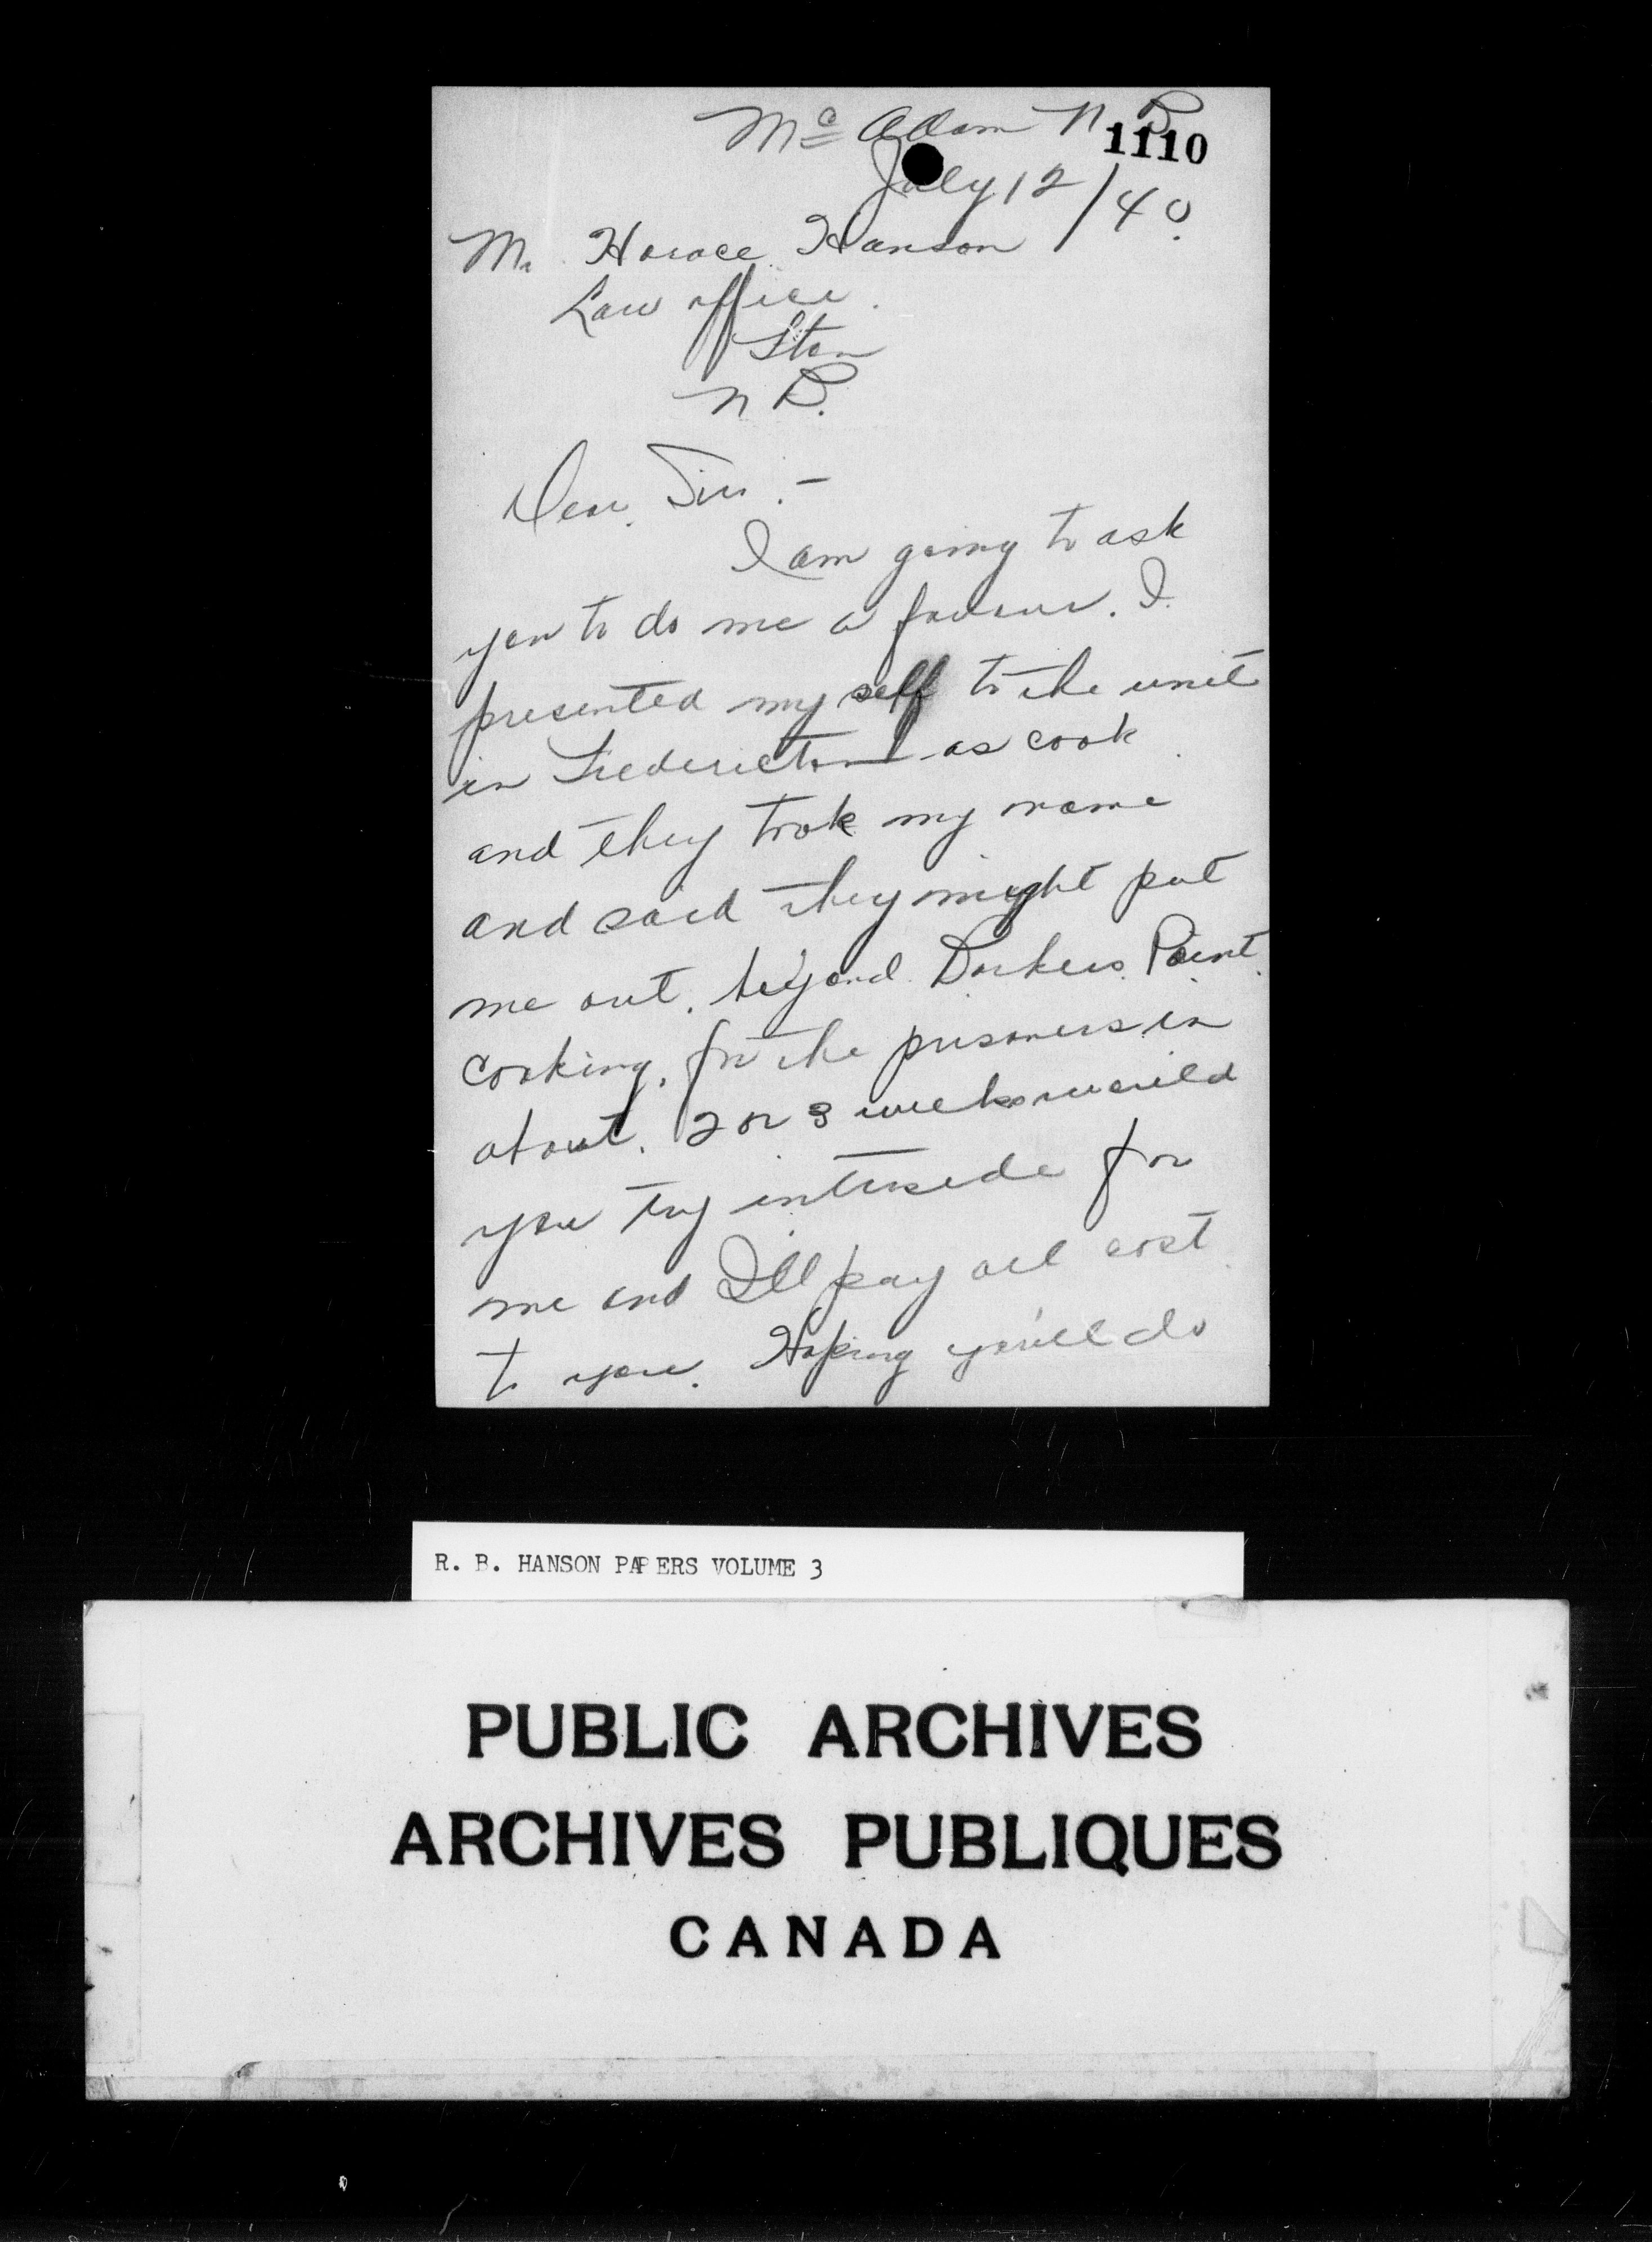 Mc Adam N B
1110
July 12/40.
Mr. Horace Hanson
Law office.
Fton
N B.
Dear Sir. -
I am going to ask
you to do me a favour. I
presented my self to the unit
in Fredericton as cook
and they took my name
and said they might put
me out. beyond Barkers Point
cooking. for the prisoners in
about. 2 or 3 weeks would
you try intersede for
me and I'll pay all cost
to you. Hoping you'll do
R. B. HANSON PAPERS VOLUME 3
PUBLIC ARCHIVES
ARCHIVES PUBLIQUES
CANADA